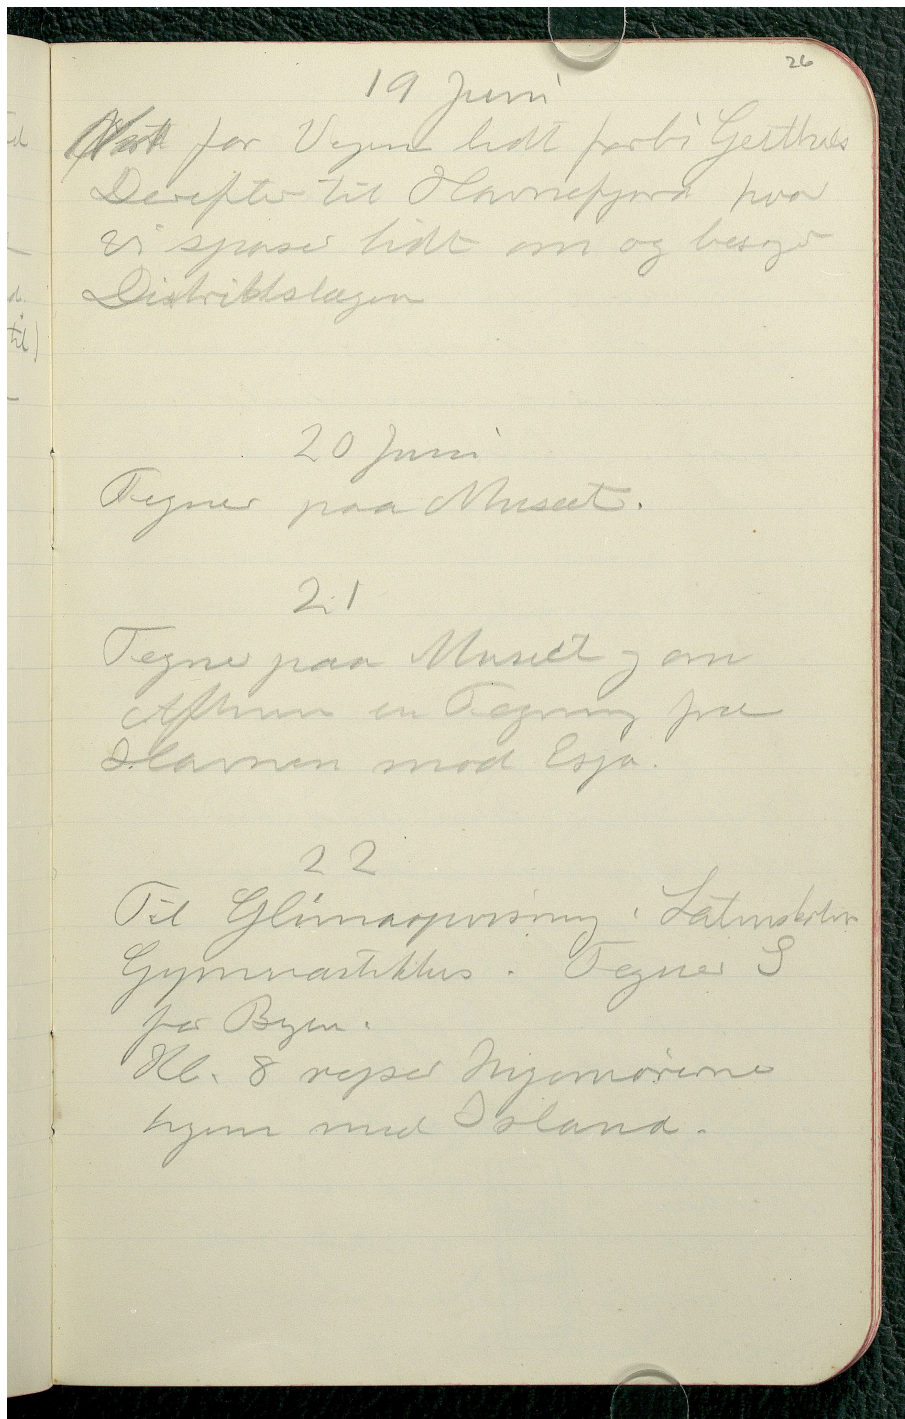 26
19 Juni
for Vejen lidt forbi
Derefter til Havnefjord hvor
vi spaser lidt om og besøger
Distriktslægen
20 Juni
Tegner paa Museet.
21
Tegner paa Museet og om
Aftnen en Tegning fra
Havnen mod Esja.
22
Til Glimaopvisning i Latinskolens
Gymnastikhus. Tegner S
for Byen.
Kl. 8 rejser Ingeniørerne
hjem med Island.